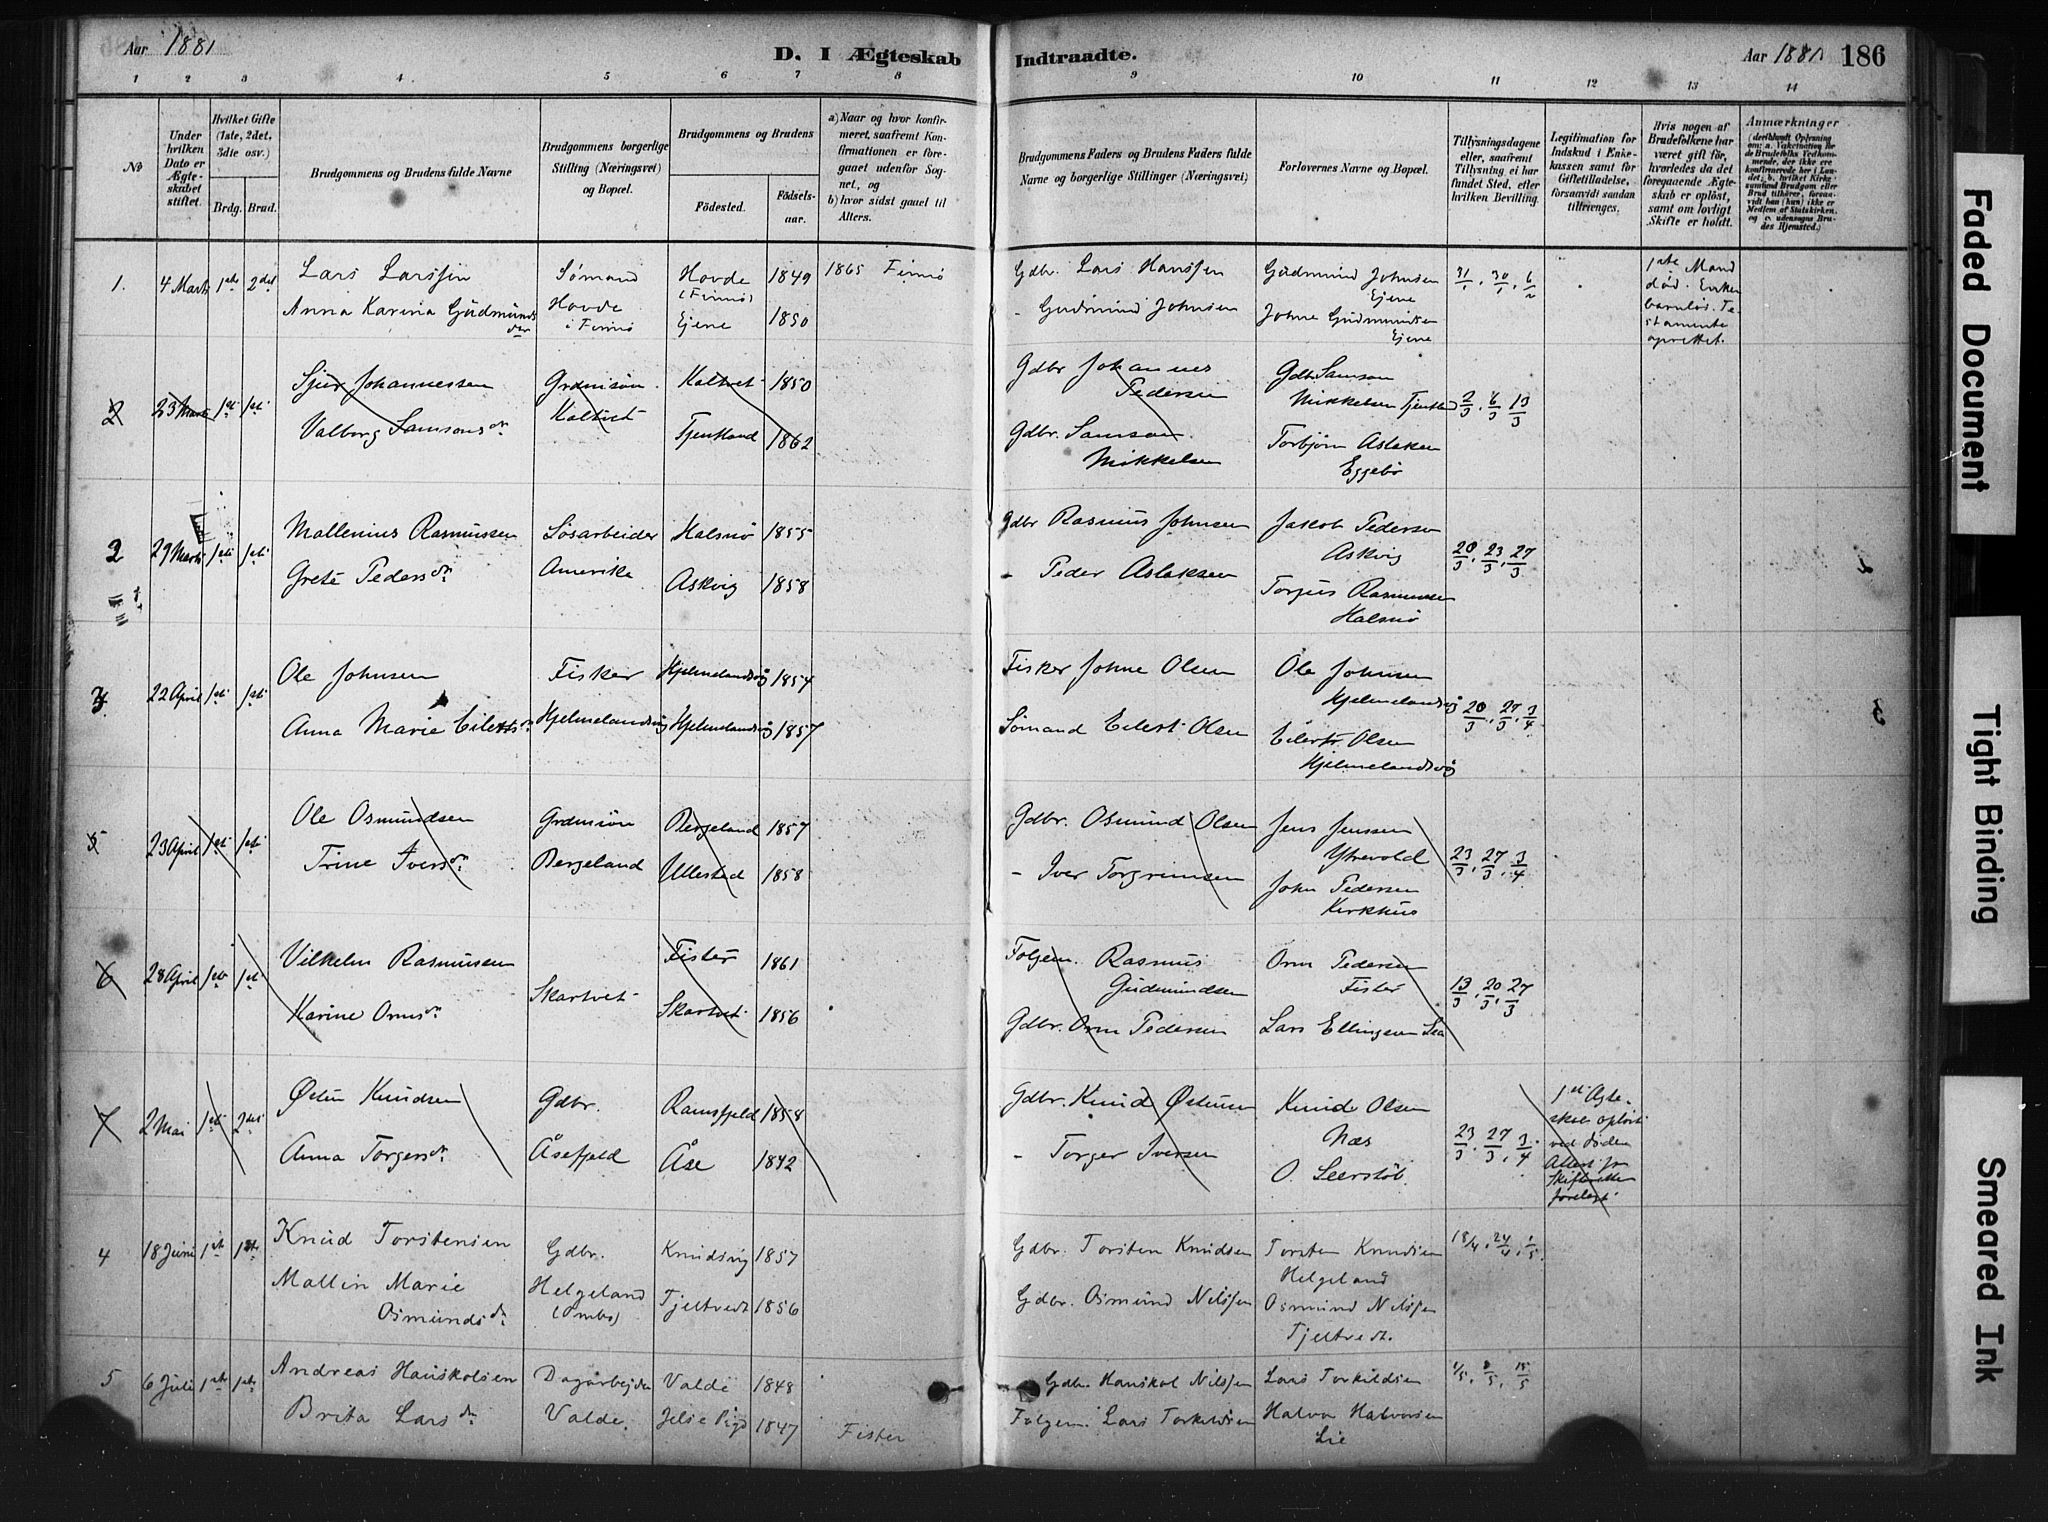 Aar 1881
D. I Ægteskab Indtraadte.
Aar 1881. 186
1 2 3 4 5 6 7 8 9 10 11 12 13 14
№
Under hvilken Dato er Ægteskabet stiftet.
Hvilket Gifte (1ste, 2det, 3die osv.)
Brdg. Brud.
Brudgommens og Brudens fulde Navne
Brudgommens borgerlige Stilling (Næringsvei) og Bopæl.
Brudgommens og Brudens
Fødested.
Fødselsaar.
a) Naar og hvor konfirmeret, saafremt Konfirmationen er foregaaet udenfor Sognet, og
b) hvor sidst gaaet til Alters.
Brudgommens Faders og Brudens Faders fulde Navne og borgerlige Stillinger (Næringsvei)
Forlovernes Navne og Bopæl.
Tillysningsdagene eller, saafremt Tillysning ei har fundet Sted, efter hvilken Bevilling.
Legitimation for Indskud i Enkekassen samt for Giftetilladelse, forsaavidt saadan tiltrænges.
Hvis nogen af Brudefolkene har været gift før, hvorledes da det foregaaende Ægteskab er opløst, samt om lovligt Skifte er holdt.
Anmærkninger
1. 4 Marts 1ste 2det
Lars Larssen Sømand Hovde (Finnø) 1849 1865 Finnø
Anna Karina Gudmundsdtr Hovde i Finnø Ejene 1850
Gdbr. Lars Hanssen Gudmund Johnsen Ejene 31/1, 30/1, 6/2
- Gudmund Johnsen Johne Gudmundsen Ejene
1ste Mand død. Enken barnløs. Testamente oprettet.
2 23 Marts 1ste 1ste
Sjur Johannessen Grdmsøn Kaltvet 1850
Valborg Samsonsdtr Kaltvet Tjentland 1862
Gdbr Johannes Pedersen Gdbr Samson Mikkelsen Tjentland 2/3, 6/3, 13/3
Gdbr. Samson Mikkelsen Torbjørn Aslaksen Eggebø
2 29 Marts 1ste 1ste
Mallenius Rasmussen Løsarbeider Halsnø 1855
Grete Pedersdtr Amerika Askvig 1858
Gdbr Rasmus Johnsen Jakob Pedersen Askvig 20/3, 23/3, 27/3
- Peder Aslaksen Torjus Rasmussen Halsnø
3. 22 April 1ste 1ste
Ole Johnsen Fisker Hjelmelandsvåg 1854
Anna Marie Eilertsdtr Hjelmelandsvåg Hjelmelandsvåg 1857
Fisker Johne Olsen Ole Johnsen Hjelmelandsvåg 20/3, 27/3, 3/4
Sømand Eilert Olsen Eilert Olsen Hjelmelandsvåg
3
5 23 April 1ste 1ste
Ole Osmundsen Grdmsøn Bergeland 1857
Trine Iversdtr Bergeland Ullestad 1858
Gdbr. Osmund Olsen Jens Jenssen Ytrevold 23/3, 27/3, 3/4
- Iver Torgrimsen John Pedersen Kirkhus
6 28 April 1ste 1ste
Vilhelm Rasmussen Fister 1861
Karine Ormsdtr Skartvet Skartvet 1856
Følgem. Rasmus Gudmundsen Orm Pedersen Fister 13/3, 20/3, 27/3
Gdbr. Orm Pedersen Lars Ellingsen Lea
7 2 Mai 1ste 2det
Østen Knudsen Gdbr. Ramsfjeld 1858
Anna Torgersdtr Åsefjeld Åse 1842
Gdbr. Knud Østensen Knud Olsen Næs 23/3, 27/3, 3/4
- Torger Iversen O. Leerstøb.
1ste Ægteskab opløst ved døden Attest fra Skifteretten forelagt.
4 18 Juni 1ste 1ste
Knud Torstensen Gdbr. Knudsvig 1857
Mallin Marie Osmundsdtr Helgeland (Ombo) Tjeltvedt 1856
Gdbr. Torsten Knudsen Torsten Knudsen Helgeland 18/4, 24/4, 1/5
Gdbr. Osmund Nilssen Osmund Nilssen Tjeltvedt.
5 6 Juli 1ste 1ste
Andreas Hanskolsen Dagarbejder Valde 1848
Brita Larsdtr Valde. Jelse Pgd 1847 Fister
Gdbr. Hanskol Nilssen Lars Torkildsen 1/5, 8/5, 15/5
Følgem. Lars Torkildsen Halvor Halvorsen Lie
Faded Document
Tight Binding
Smeared Ink